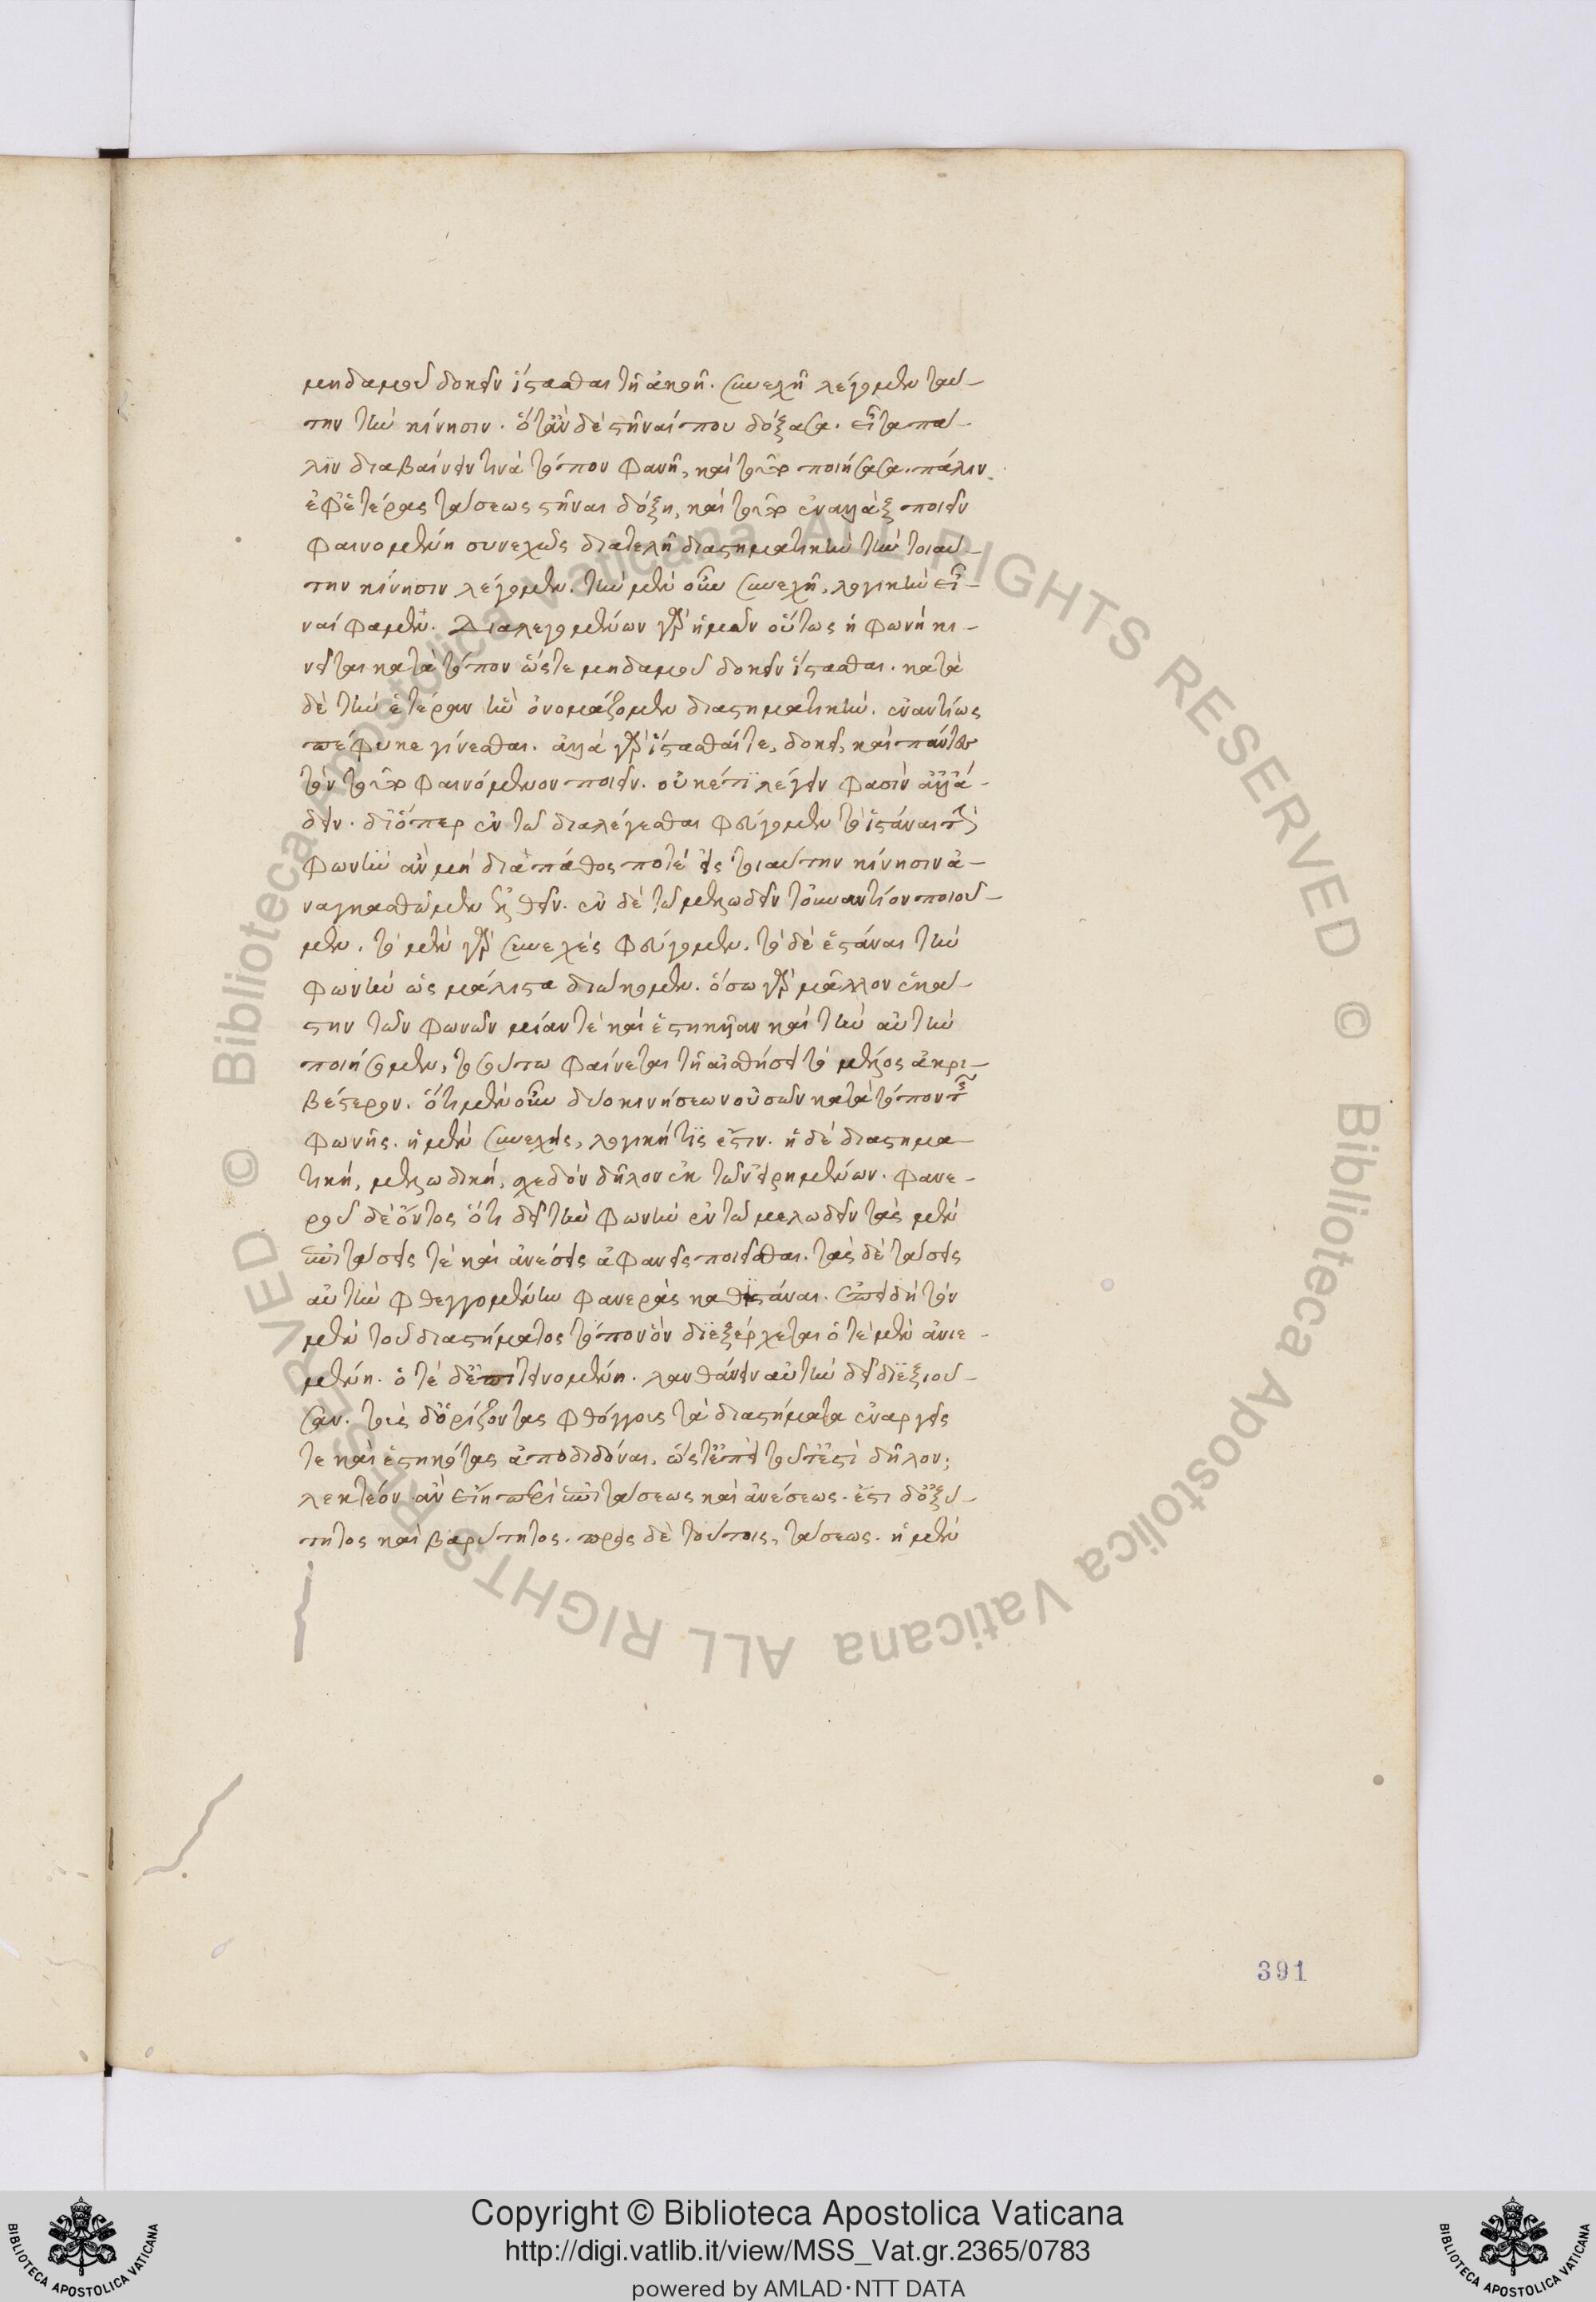 μηδαμοῦ δοκεῖν ἵστασθαι τῇ ἀκοῇ. συνεχῆ λέγομεν ταύ-
την τὴν κίνησιν. ὅταν δὲ στῆναί που δόξασα. εἶτα πά-
λιν διαβαίνειν τινὰ τόπον φανῇ, καὶ τοῦτο ποιήσασα. πάλιν
ἐφ' ἑτέρας τάσεως στῆναι δόξῃ, καὶ τοῦτο ἐναλλὰξ ποιεῖν
φαινομένη συνεχῶς διατελῇ διαστηματικὴν τὴν τοιαύ-
την κίνησιν λέγομεν. τὴν μὲν οὖν συνεχῆ, λογικὴν εἶ-
ναί φαμεν. Διαλεγομένων γὰρ ἡμῶν οὕτως ἡ φωνὴ κι-
νεῖται κατὰ τόπον ὥστε μηδαμοῦ δοκεῖν ἵστασθαι. κατὰ
δὲ τὴν ἑτέραν ἣν ὀνομάζομεν διαστηματικὴν. ἐναντίως
πέφυκε γίνεσθαι. ἀλλὰ γὰρ ἵστασθαί τε, δοκεῖ, καὶ πάντες
τὸν τοῦτο φαινόμενον ποιεῖν. οὐκέτι λέγειν φασὶν ἀλλ' ἄ-
δειν. διόπερ ἐν τῶ διαλέγεσθαι φεύγομεν τὸ ἱστάναι τὴν
φωνὴν ἂν μὴ διὰ πάθος ποτὲ εἰς τοιαύτην κίνησιν ἀ-
ναγκασθῶμεν ἐλθεῖν. ἐν δὲ τῶ μελωδεῖν τοὐναντίον ποιοῦ-
μεν. τὸ μὲν γὰρ συνεχὲς φεύγομεν. τὸ δὲ ἑστάναι τὴν
φωνὴν ὡς μάλιστα διώκομεν. ὅσω γὰρ μᾶλλον ἑκά-
στην τῶν φωνῶν μίαν τὲ καὶ ἑστηκυῖαν καὶ τὴν αὐτὴν
ποιήσομεν, τοσούτω φαίνεται τῇ αἰσθήσει τὸ μέλος ἀκρι-
βέστερον. ὅτι μὲν οὖν δύο κινήσεων οὐσῶν κατὰ τόπον τῆς
φωνῆς. ἡ μὲν συνεχὴς, λογική τίς ἐστιν. ἡ δὲ διαστημα-
τικὴ, μελωδικὴ, σχεδὸν δῆλον ἐκ τῶν εἰρημένων. φανε-
ροῦ δὲ ὄντος ὅτι δεῖ τὴν φωνὴν ἐν τῶ μελωδεῖν τὰς μὲν
ἐπιτάσεις τὲ καὶ ἀνέσεις ἀφανεῖς ποιεῖσθαι. τὰς δὲ τάσεις
αὐτὴν φθεγγομένην φανερὰς καθιστάναι. ἐπειδὴ τὸν
μὲν τοῦ διαστήματος τόπον ὃν διεξέρχεται ὁτὲ μὲν ἀνιε-
μένη. ὁτὲ δ' ἐπιτεινομένη. λανθάνειν αὐτὴν δεῖ διεξιοῦ-
σαν. τοὺς δ' ὁρίζοντας φθόγγους τὰ διαστήματα ἐναργεῖς
τε καὶ ἑστηκότας ἀποδιδόναι. ὥστ' ἐπεὶ τοῦτ' ἐστὶ δῆλον;
λεκτέον ἂν εἴη περὶ ἐπιτάσεως καὶ ἀνέσεως. ἔτι δ' ὀξύ-
τητος καὶ βαρύτητος. πρὸς δὲ τούτοις, τάσεως. ἡ μὲν
391
Copyright © Biblioteca Apostolica Vaticana
http://digi.vatlib.it/view/MSS_Vat.gr.2365/0783
powered by AMLAD·NTT DATA